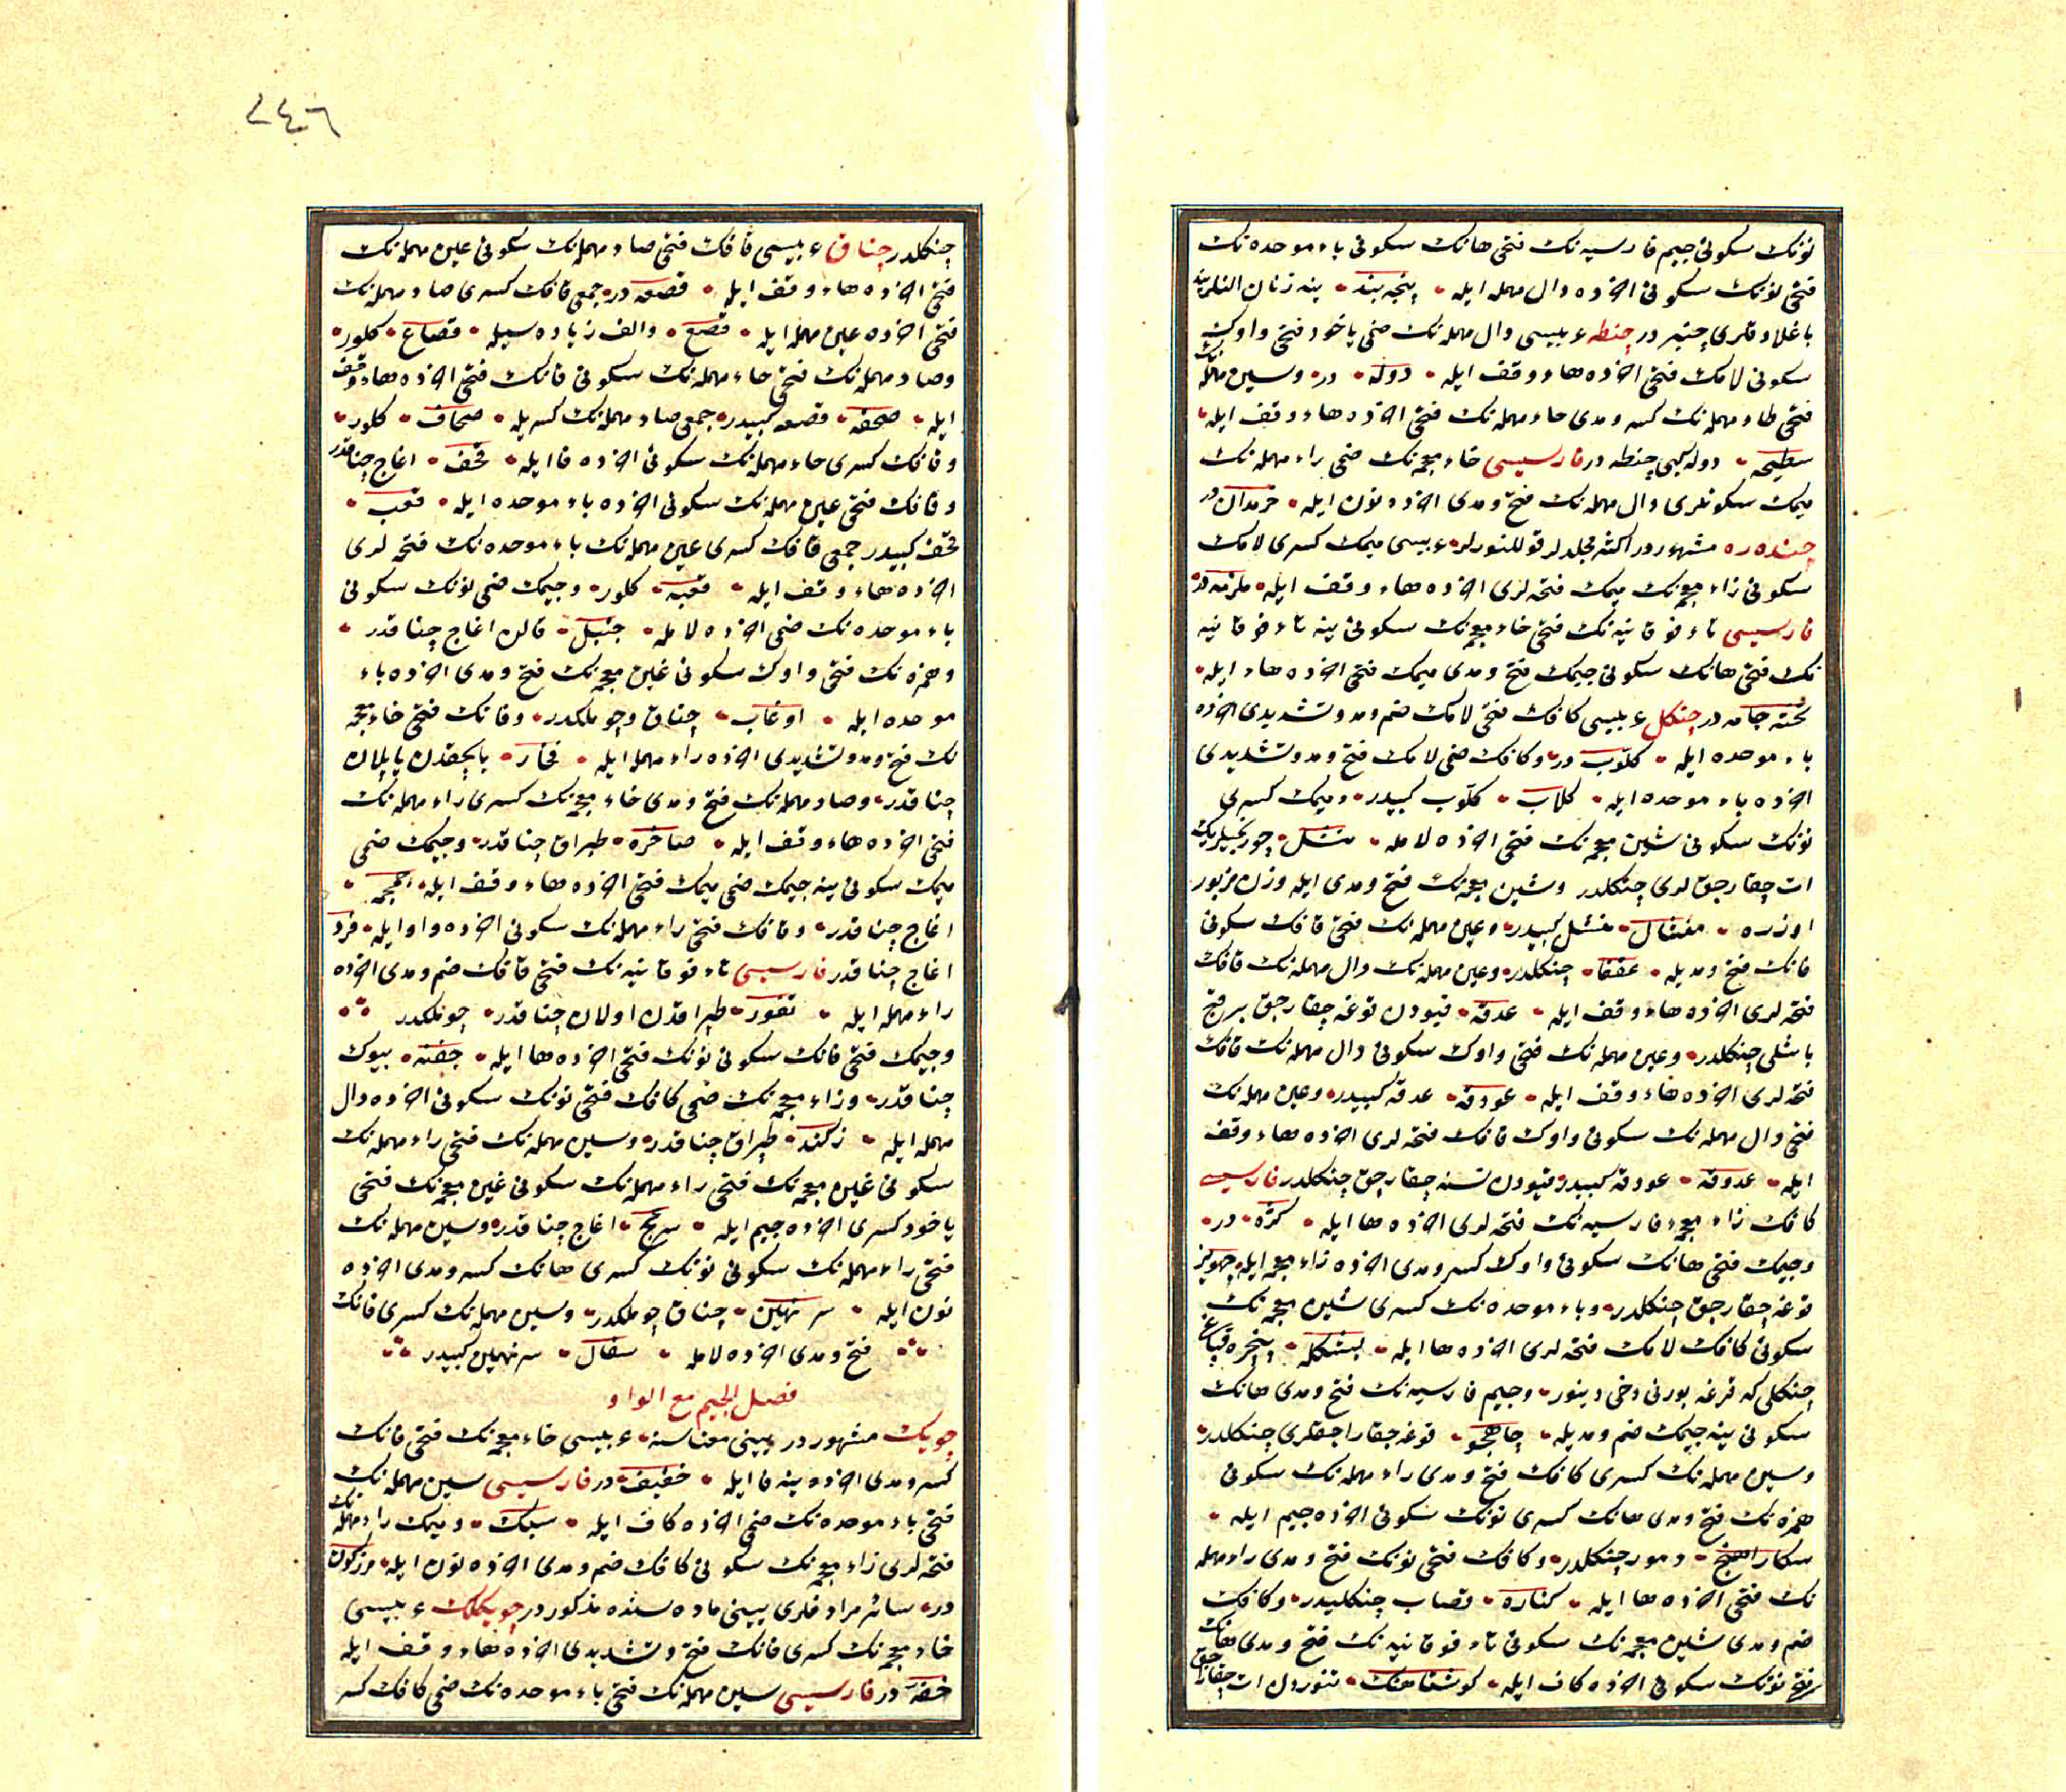 نونك سكونى جيم فارسيه نك فتحى هانك سكونى باء موحده نك
فتحى نونك سكونى آخرنده دال مهمله ايله پنجه بند ينه زنان النلرينه
باغلادقلرى چنبر در چنطه عربيسى دال مهمله نك ضمى ياخود فتحى واوك
سكونى لامك فتحى آخرنده هاء وقف ايله دوله در وسين مهمله نك
فتحى طاء مهمله نك كسر ومدى حاء مهمله نك فتحى آخرنده هاء وقف ايله
سطيحه دوله كبى چنطه در فارسيسى خاء معجمه نك ضمى راء مهمله نك
ميمك سكونلرى دال مهمله نك فتح ومدى آخرنده نون ايله خرمدان در
چندره مشهوردر اكثر مجلدلر قوللنورلر عربيسى ميمك كسرى لامك
سكونى زاء معجمه نك ميمك فتحه لرى آخرنده هاء وقف ايله ملزمه در
فارسيسى تاء فوقانيه نك فتحى خاء معجمه نك سكونى ينه تاء فوقانيه
نك فتحى هانك سكونى جيمك فتح ومدى ميمك فتحى آخرنده هاء ايله
تخته جامه در چنكل عربيسى كافك فتحى لامك ضم ومد وتشديدى آخرنده
باء موحده ايله كلّوب در وكافك ضمى لامك فتح ومد وتشديدى
آخرنده باء موحده ايله كلاب كلّوب كبيدر وميمك كسرى
نونك سكونى شين معجمه نك فتحى آخرنده لامله منشل چوربجيلرك
ات چقارجق لرى چنكلدر وشين معجمه نك فتح ومدى ايله وزن مزبور
اوزره منشال منشل كبيدر وعين مهمله نك فتحى قافك سكونى
فانك فتح ومديله عقفا چنكلدر وعين مهمله نك دال مهمله نك قافك
فتحه لرى آخرنده هاء وقف ايله عدقه قيودن قوغه چقارجق برقچ
باشلى چنكلدر وعين مهمله نك فتحى واوك سكونى دال مهمله نك قافك
فتحه لرى آخرنده هاء وقف ايله عودقه عدقه كبيدر وعين مهمله نك
فتحى دال مهمله نك سكونى واوك قافك فتحه لرى آخرنده هاء وقف
ايله عدوقه عودقه كبيدر قيودن نسنه چقارجق چنكلدر فارسيسى
كافك زاء معجمه فارسيه نك فتحه لرى آخرنده ها ايله كژه در
وجيمك فتحى هانك سكونى واوك كسر ومدى آخرنده زاء معجمه ايله جهويز
قوغه چقارجق چنكلدر وباء موحده نك كسرى شين معجمه نك
سكونى كافك لامك فتحه لرى آخرنده ها ايله بشكله پنجره قپاغى
چنكلى كه قرغه بورنى دخى دينور وجيم فارسيه نك فتح ومدى هانك
سكونى ينه جيمك ضم ومديله چاهجو قوغه چقاراجقلرى چنكلدر
وسين مهمله نك كسرى كافك فتح ومدى راء مهمله نك سكونى
همزه نك فتح ومدى هانك كسرى نونك سكونى آخرنده جيم ايله
سكارآهنج دمور چنكلدر وكافك فتحى نونك فتح ومدى راء مهمله
نك فتحى آخرنده ها ايله كناره قصاب چنكليدر وكافك
ضم ومدى شين معجمه نك سكونى تاء فوقانيه نك فتح ومدى هانك
فتحى نونك سكونى آخرنده كاف ايله كوشتاهنك تنوردن ات چقاراجق
٢٤٦
چنكلدر چناق عربيسى قافك فتحى صاد مهمله نك سكونى عين مهمله نك
فتحى آخرنده هاء وقف ايله قصعه در جمعى قافك كسرى صاد مهمله نك
فتحى آخرنده عين مهمله ايله قصع والف زياده سيله قصاع كلور
وصاد مهمله نك فتحى حاء مهمله نك سكونى فانك فتحى آخرنده هاء وقف
ايله صحفه قصعه كبيدر جمعى صاد مهمله نك كسريله صحاف كلور
وقافك كسرى حاء مهمله نك سكونى آخرنده فا ايله قحف اغاج چناقدر
وقافك فتحى عين مهمله نك سكونى آخرنده باء موحده ايله قعب
قحف كبيدر جمعى قافك كسرى عين مهمله نك باء موحده نك فتحه لرى
آخرنده هاء وقف ايله قعبه كلور وجيمك ضمى نونك سكونى
باء موحده نك ضمى آخرنده لامله جنبل قالن اغاج چناقدر
وهمزه نك فتحى واوك سكونى غين معجمه نك فتح ومدى آخرنده باء
موحده ايله اوغاب چناق وچوملكدر وفانك فتحى خاء معجمه
نك فتح ومد وتشديدى آخرنده راء مهمله ايله فخار بالچقدن ياپلان
چناقدر وصاد مهمله نك فتح ومدى خاء معجمه نك كسرى راء مهمله نك
فتحى آخرنده هاء وقف ايله صاخره طپراق چناقدر وجيمك ضمى
ميمك سكونى ينه جيمك ضمى ميمك فتحى آخرنده هاء وقف ايله جمجمه
اغاج چناقدر وقافك فتحى راء مهمله نك سكونى آخرنده واو ايله قرو
اغاج چناقدر فارسيسى تاء فوقانيه نك فتحى قافك ضم ومدى آخرنده
راء مهمله ايله تقور طپراقدن اولان چناقدر چوملكدر
وجيمك فتحى فانك سكونى نونك فتحى آخرنده ها ايله جفنه بيوك
چناقدر وزاء معجمه نك ضمى كافك فتحى نونك سكونى آخرنده دال
مهمله ايله زكند طپراق چناقدر وسين مهمله نك فتحى راء مهمله نك
سكونى غين معجمه نك فتحى راء مهمله نك سكونى غين معجمه نك فتحى
ياخود كسرى آخرنده جيم ايله اغاج چناقدر وسين مهمله نك
فتحى راء مهمله نك سكونى نونك كسرى هانك كسر ومدى آخرنده
نون ايله سرنهين چناق چوملكدر وسين مهمله نك كسرى فانك
فتح ومدى آخرنده لامله سفال سرنهين كبيدر
فصل الجيم مع الواو
چويك مشهوردر يينى معناسنه عربيسى خاء معجمه نك فتحى فانك
كسر ومدى آخرنده ينه فا ايله خفيف در فارسيسى سين مهمله نك
فتحى باء موحده نك ضمى آخرنده كاف ايله سبك وميمك راء مهمله نك
فتحه لرى زاء معجمه نك سكونى كافك ضم ومدى آخرنده نون ايله مرزكون
در سائر مرادفلرى يينى ماده سنده مذكوردر چويكلك عربيسى
خاء معجمه نك كسرى فانك فتح وتشديدى آخرنده هاء وقف ايله
خفه در فارسيسى سين مهمله نك فتحى باء موحده نك ضمى كافك كسر